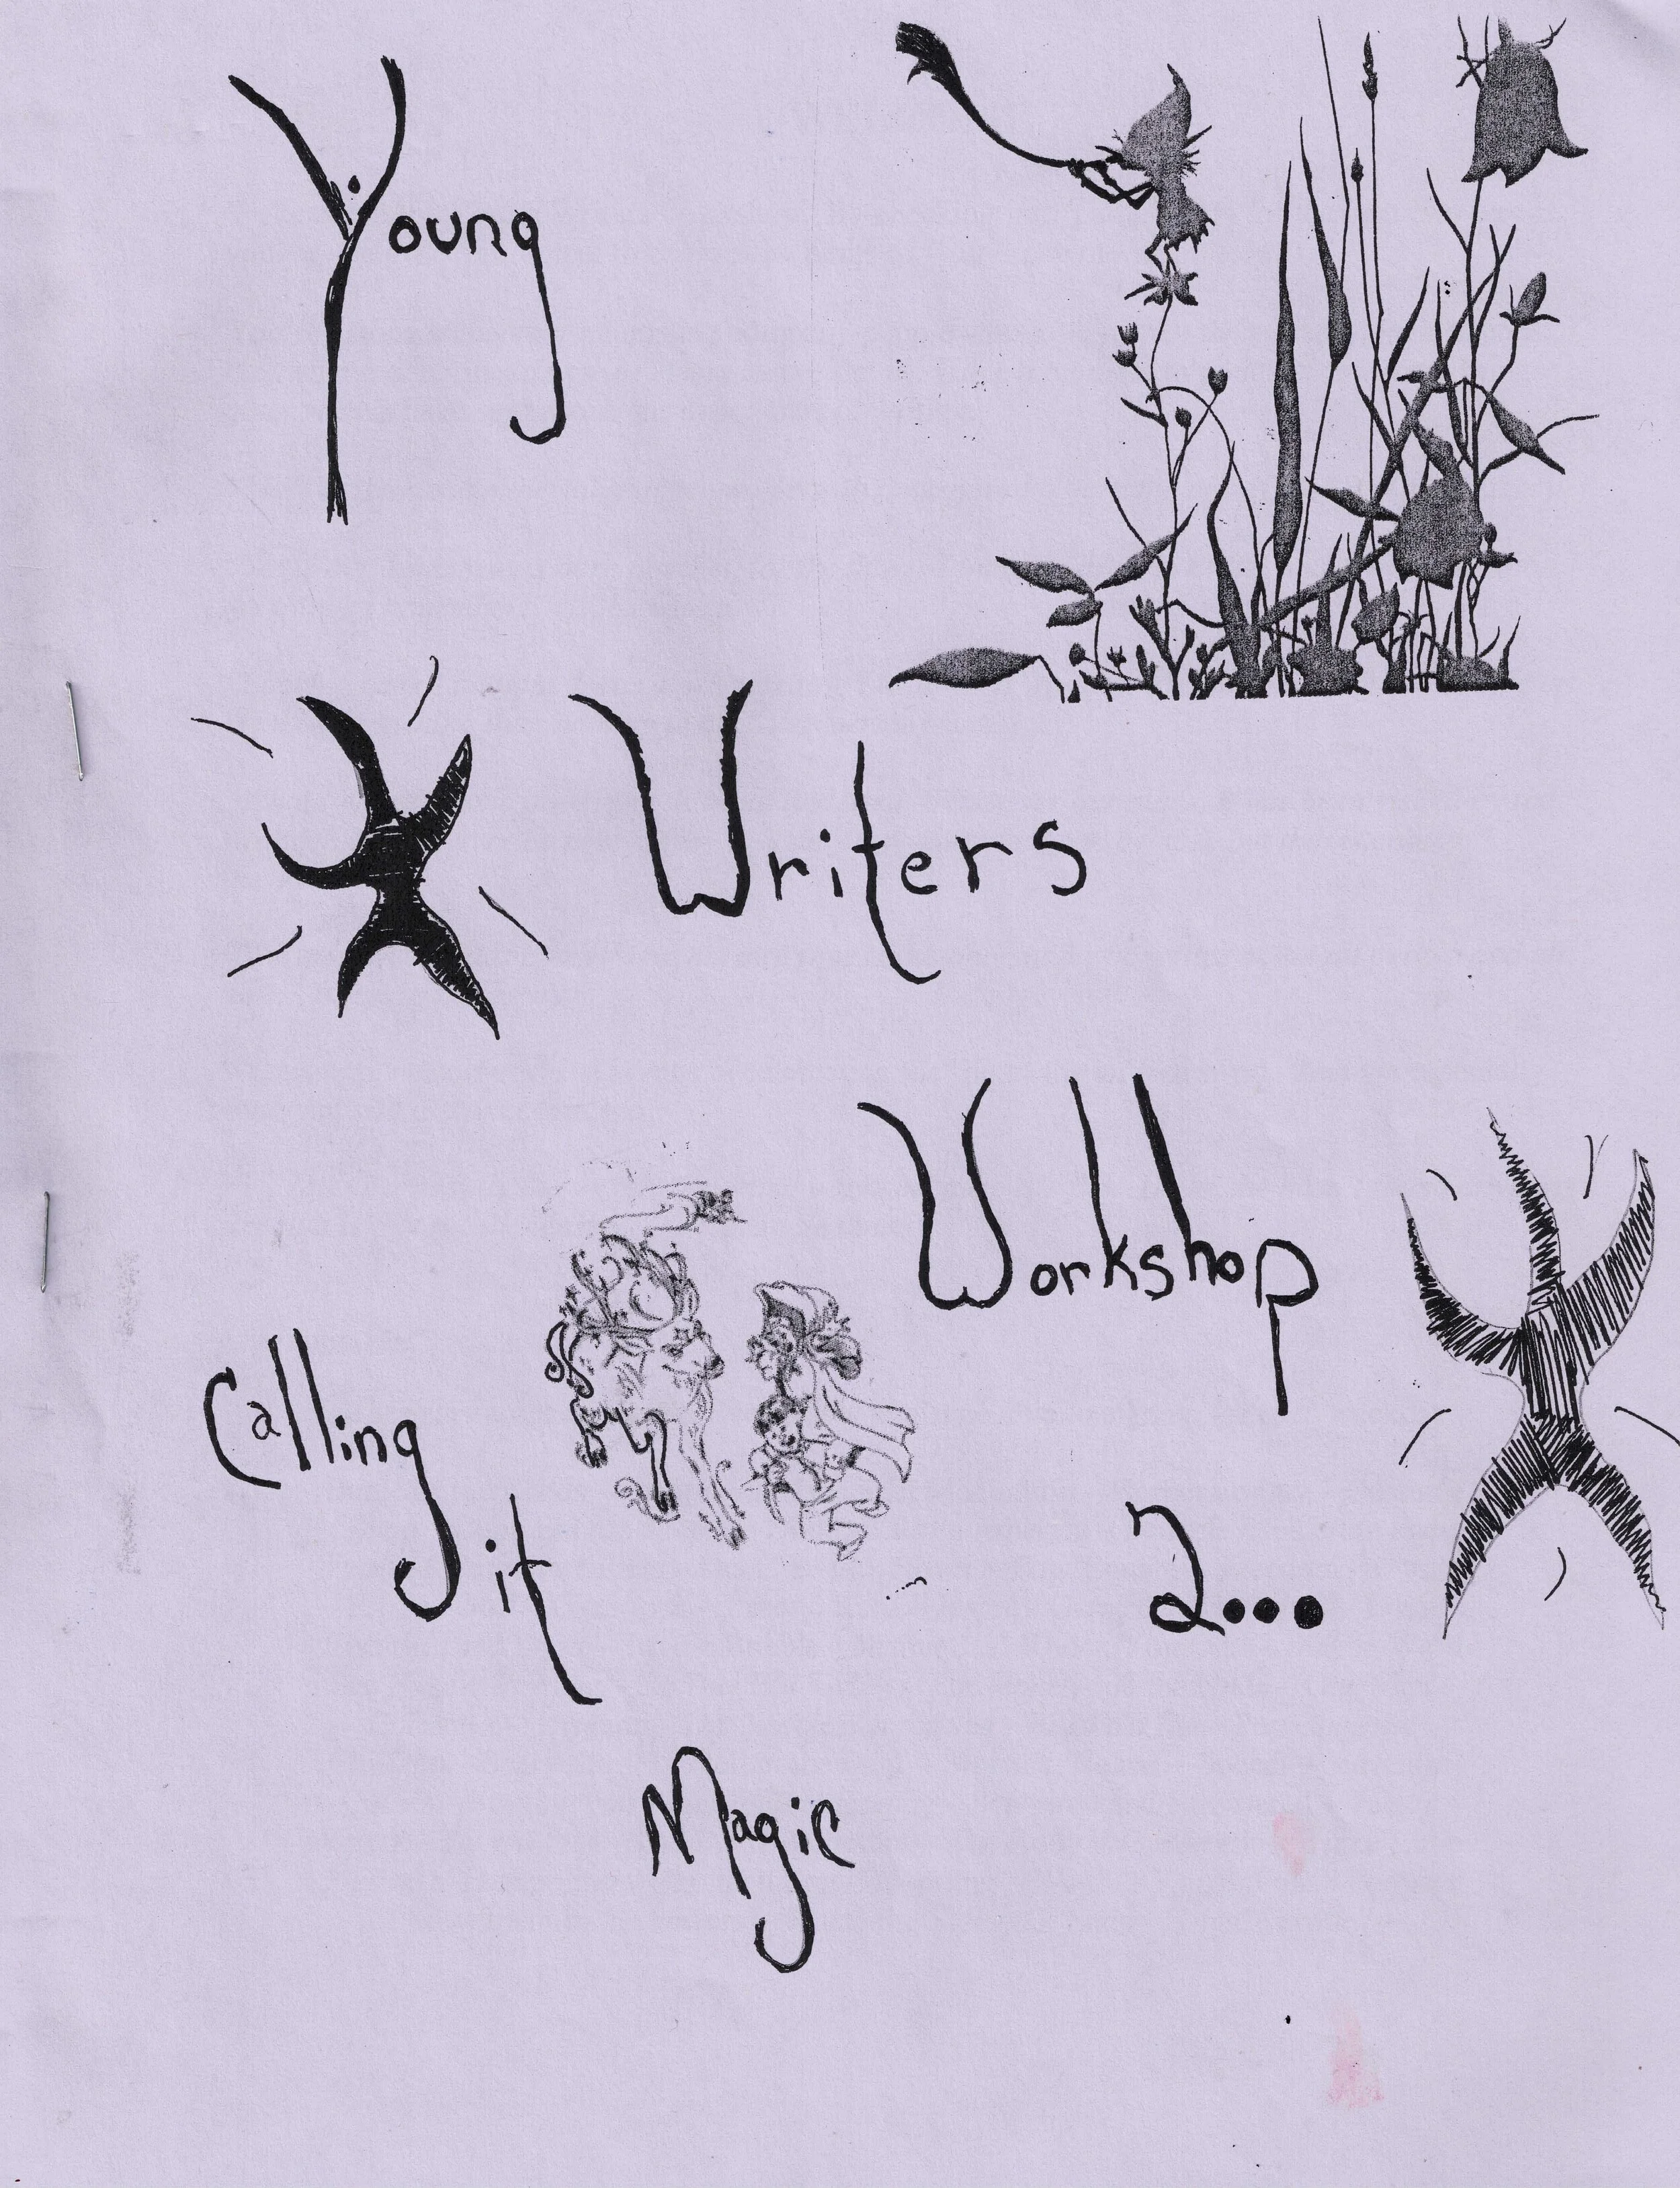 Young
Writers
Workshop
Calling
it
a...
Magic